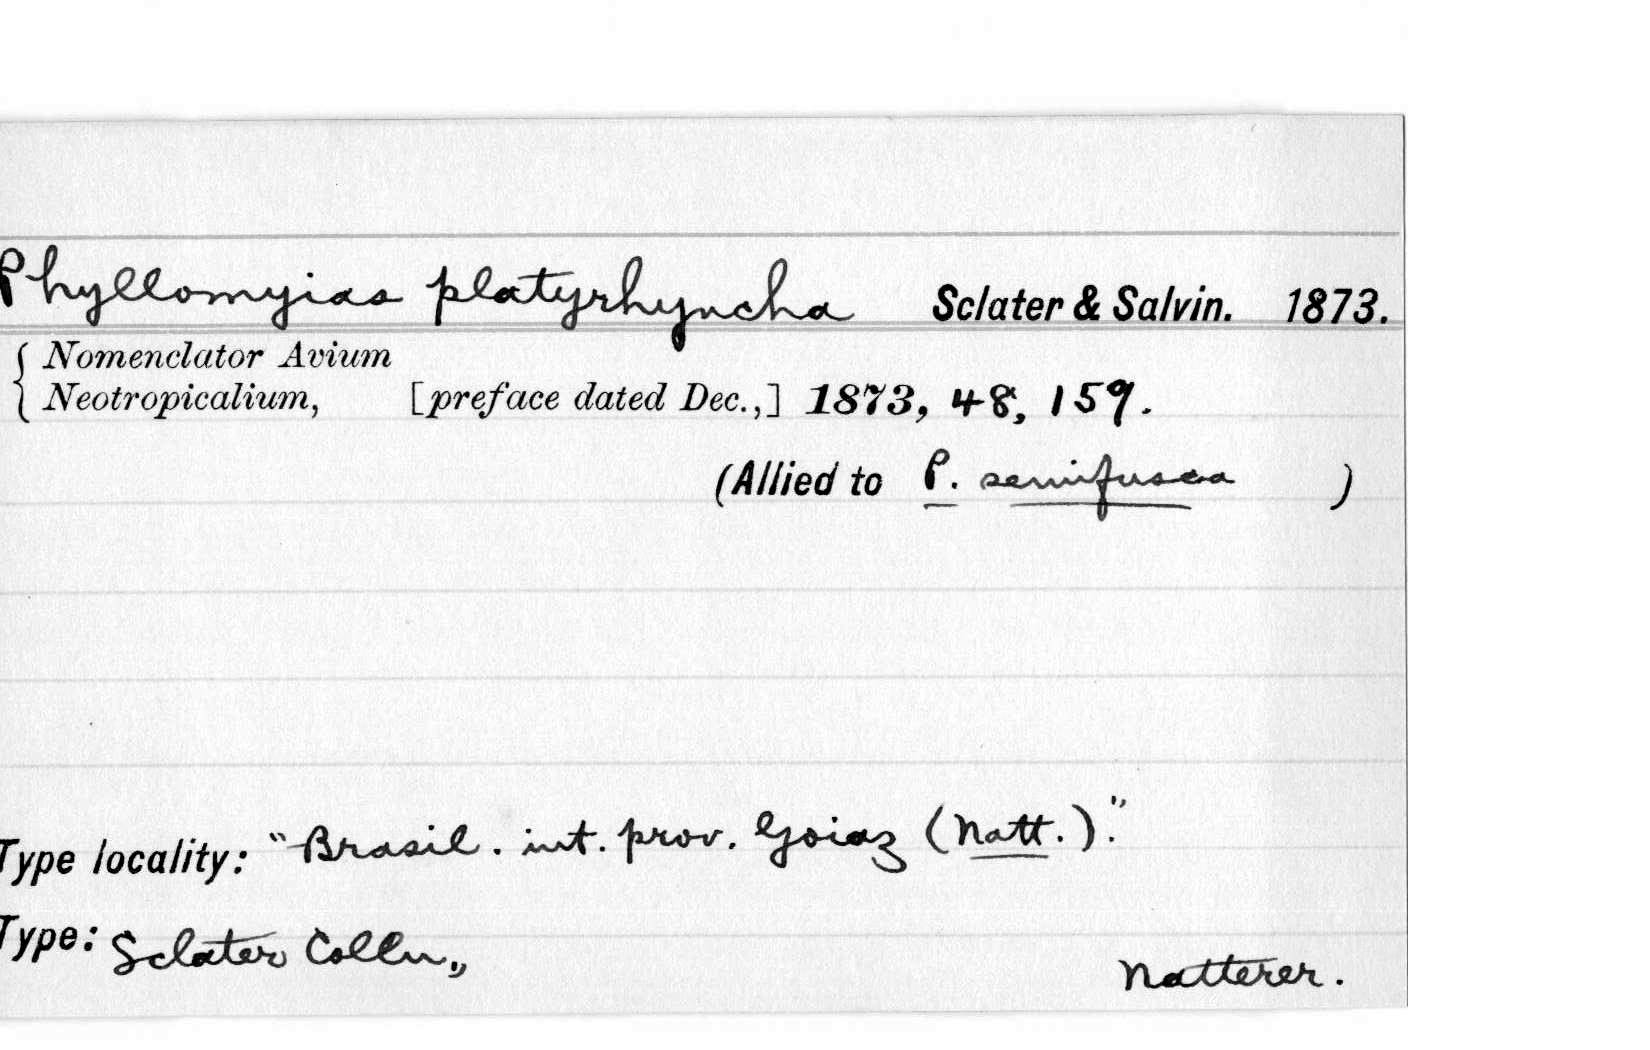 Phyllomyias platyrhyncha Sclater & Salvin. 1873.
{ Nomenclator Avium
Neotropicalium, [preface dated Dec.,] 1873, 48, 159.
(Allied to P. semifusca )
Type locality: "Brasil. int. prov. Goiaz (Natt.)."
Type: Sclater Colln.,
Natterer.